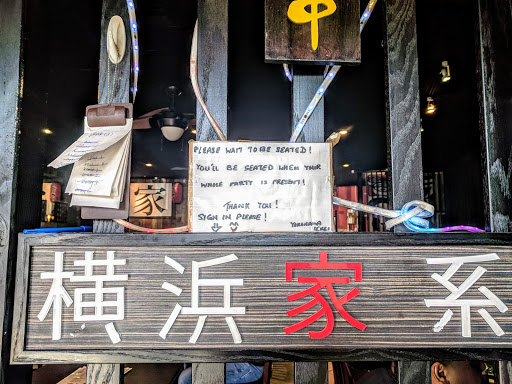 PLEASE WAIT TO BE SEATED!
YOU'LL BE SEATED WHEN YOUR
WHOLE PARTY IS PRESENT!
THANK YOU!
SIGN IN PLEASE!
YOKOHAMA
家
横浜家系